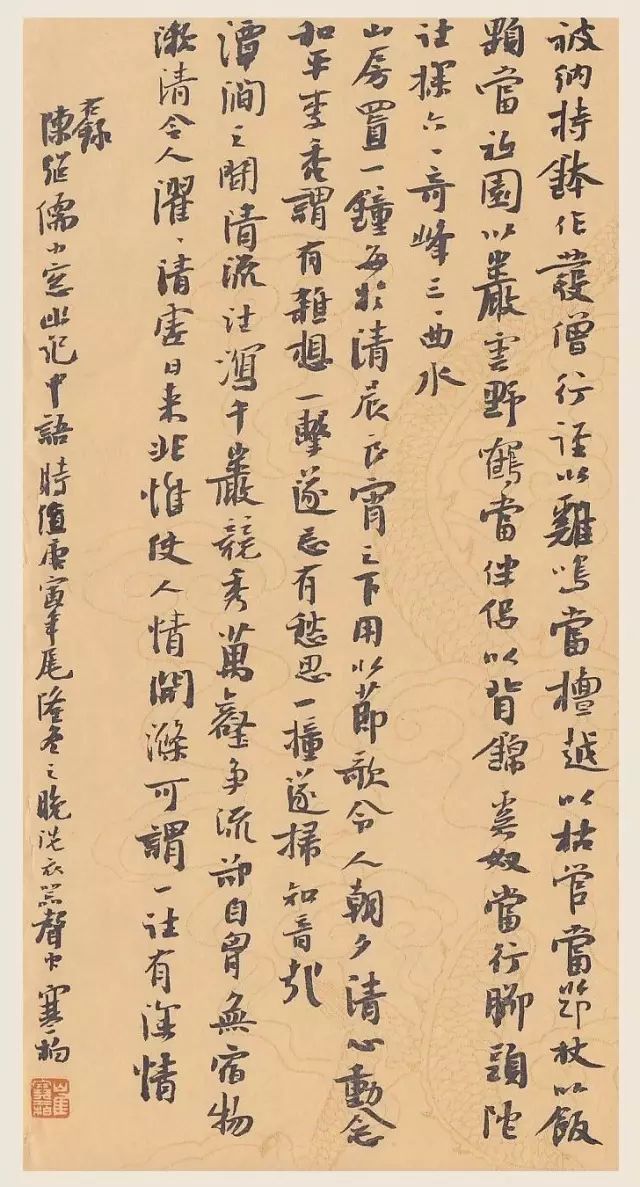 被納持鉢作髮僧行徑以雞鳴當檀越以枯管當笻杖以飯
顆當祗園以巖雲野鶴當伴侶以背錦奚奴當行腳頭陀
往探六、奇峰三、曲水
山房置一鐘每於清晨良宵之下用以節歌令人朝夕清心動念
和平李禿謂有雜想一擊遂忘有愁思一撞遂掃知音哉
潭澗之間清流注瀉千巖競秀萬壑爭流卻自胷無宿物
漱清令人濯、清虛日来非惟使人情開滌可謂一往有深情
右錄
陳繼儒小窓幽記中語時值庚寅年尾隆冬之晚洗衣器聲中寒柏
崔寒柏